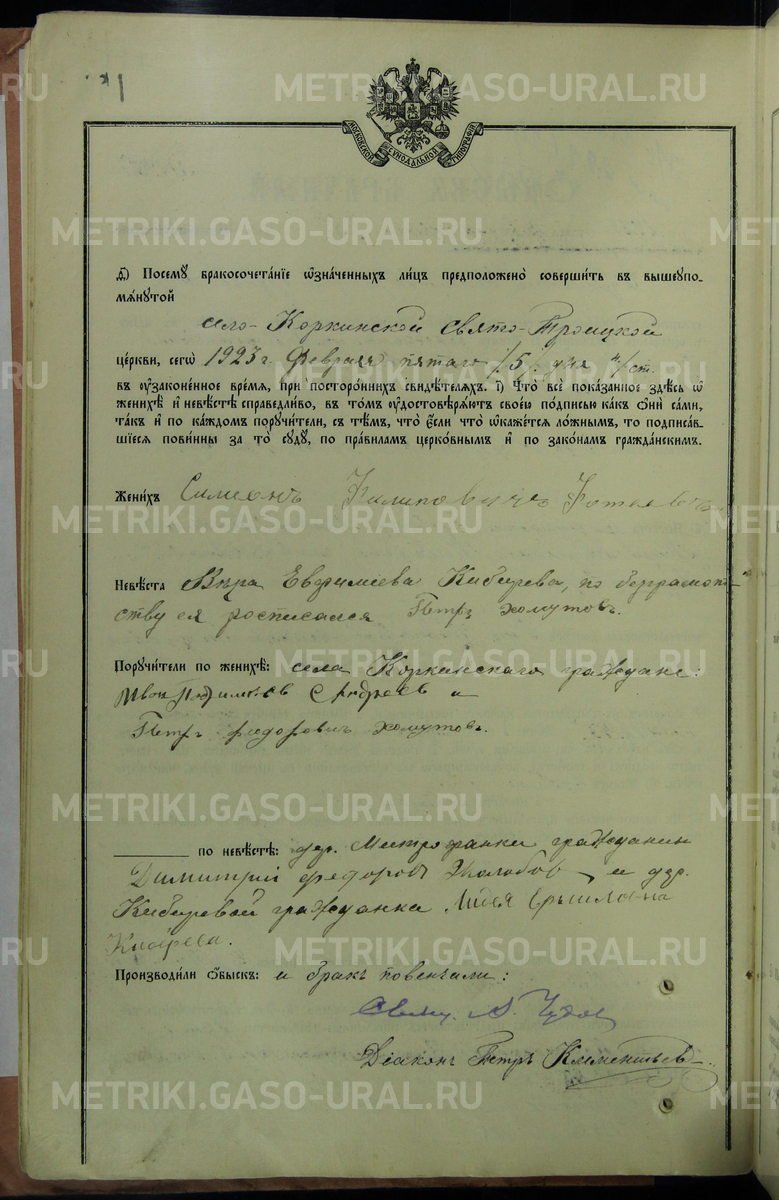 METRIKI.GASO-URAL.RU
МОСКОВСКОЙ СѴНОДАЛЬНОЙ ТИПОГРАФІИ
METRIKI.GASO-URAL.RU
з҃) Посемꙋ бракосочета́нїе ѡ҆зна́ченныхъ ли́цъ предположено̀ соверши́ть въ вышеꙋпо-
мѧ́нꙋтой
село-Коркинской Свято-Троицкой
це́ркви, сегѡ̀ 1923 г. Февраля пятаго /5/ дня н/ст.
въ ᲂу҆зако́ненное вре́мѧ, при посторо́ннихъ свидѣ́телѧхъ. и҃) Что̀ всѐ пока́занное здѣ́сь ѡ҆
женихѣ̀ и҆ невѣ́стѣ справедли́во, въ то́мъ ᲂу҆достовѣрѧ́ютъ свое́ю по́дписью ка́къ ѻ҆нѝ са́ми,
та́къ и҆ по ка́ждомъ порꙋчи́тели, съ тѣ́мъ, что̀ є҆́сли что̀ ѡ҆ка́жетсѧ ло́жнымъ, то подписа́в-
шїесѧ пови́нны за то̀ сꙋдꙋ̀, по пра́виламъ церко́внымъ и҆ по зако́намъ гражда́нскимъ.
METRIKI.GASO-URAL.RU
Жени́хъ Симеонъ
METRIKI.GASO-URAL.RU
Невѣ́ста Вѣра Евфимиева Кибирева, по безграмот-
ству ея росписался Петръ Хомутовъ.
METRIKI.GASO-URAL.RU
Порꙋчи́тели по женихѣ̀: села Коркинскаго граждане:
Андреев и
Петръ Федоровичъ Хомутовъ.
METRIKI.GASO-URAL.RU
по невѣ́стѣ: дер. Митрофанки гражданин
Димитрий Федоров и дер.
Кибиревой гражданка Лидия
METRIKI.GASO-URAL.RU
Кибирева.
Производи́ли ѻ҆́быскъ: и бракъ повенчали:
Свящ. А. Чудов
Діаконъ Петръ Климентьев
METRIKI.GASO-URAL.RU